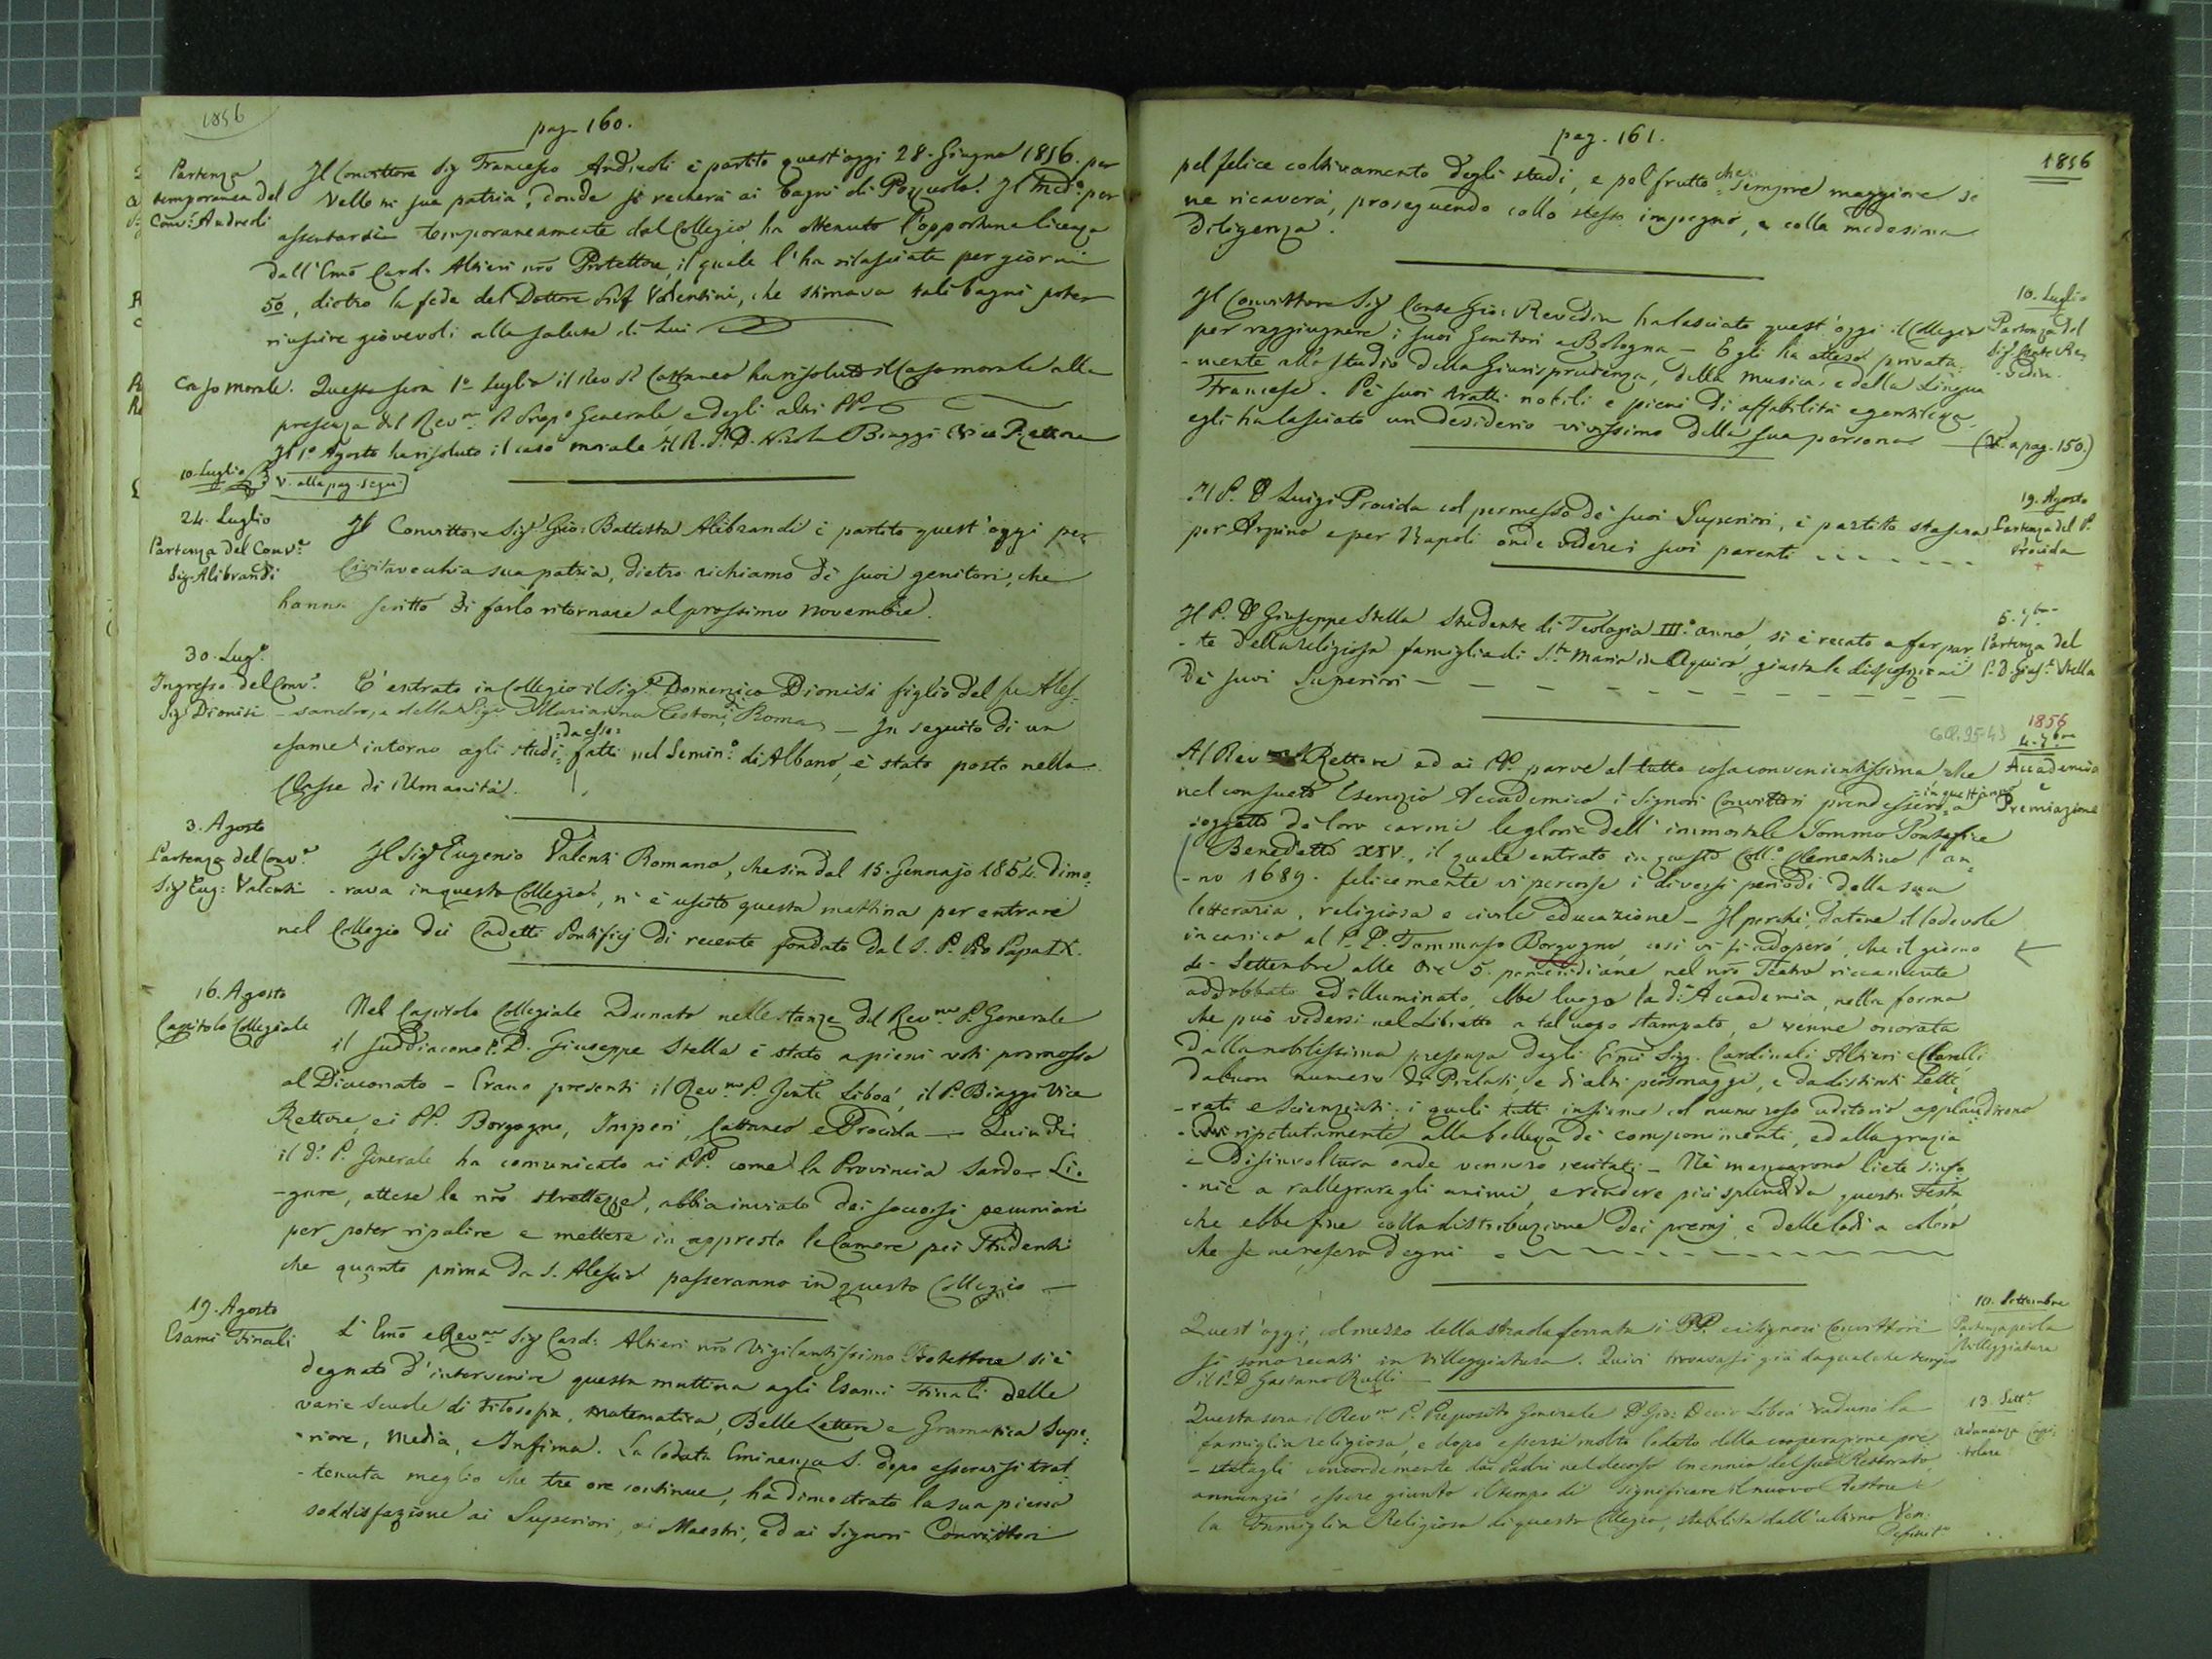 1856
pag. 160.
Partenza
temporanea del
Conv.e Andreoli
Il Convittore Sig Francesco Andreoli è partito quest'oggi 28. Giugno 1856. per
Velletri sua patria, donde si recherà ai bagni di Pozzuolo. Il Med.o per
assentarsi temporaneamente dal Collegio, ha ottenuto l'opportuna licenza
dall'Emo Card. Altieri nro Protettore, il quale l'ha rilasciata per giorni
50, dietro la fede del Dottore Valentini, che stimava tali bagni poter
riuscire giovevoli alla salute di Lui
Caso morale. Questa sera 1o Luglio il Rev P. Cattaneo ha risoluto il Caso morale alla
presenza del Rev.mo P. Prep.o Generale, e degli altri PP.
Il 1o Agosto ha risoluto il caso morale il R. P. D. Nicola Biaggi Vice Rettore
10. Luglio v. alla pag. segu.
24. Luglio
Partenza del Conv.e
Sig. Alibrandi
Il Convittore Sig Gio: Battista Alibrandi è partito quest'oggi per
Civitavecchia sua patria, dietro richiamo de' suoi genitori, che
hanno scritto di farlo ritornare al prossimo novembre.
30. Lug.o
Ingresso del Conv.e
Sig Dionisi
E' entrato in Collegio il Sig.r Domenico Dionisi figlio del fu Ales-
-sandro, e della Sig.a Marianna Cestoni, di Roma — In seguito di un
esame intorno agli studi =da esso= fatti nel Semin.o di Albano, è stato posto nella
Classe di Umanità.
3. Agosto
Partenza del Conv.e
Sig Eug: Valenti
Il Sig.r Eugenio Valenti Romano, che sin dal 15. Gennajo 1854. dimo-
-rava in questo Collegio, n'è uscito questa mattina per entrare
nel Collegio dei Cadetti Pontificj di recente fondato dal S. P. Pio Papa IX.
16. Agosto
Capitolo Collegiale
Nel Capitolo Collegiale adunato nelle stanze del Rev.mo P. Generale
il Suddiacono P. D. Giuseppe Stella è stato a pieni voti promosso
al Diaconato — Erano presenti il Rev.mo P. Gen.le Liboà, il P. Biaggi Vice
Rettore, ei PP. Borgogno, Imperi, Cattaneo e Procida — Quindi
il d.o P. Generale ha comunicato ai PP. come la Provincia Sardo-Li-
-gure, attese le nre strettezze, abbia inviato dei soccorsi pecuniari
per poter ripulire e mettere in appresto le Camere pei Studenti
che quanto prima da S. Alessio passeranno in questo Collegio —
19. Agosto
Esami Finali
L'Emo e Rev.mo Sig Card: Altieri nro Vigilantissimo Protettore si è
degnato d'intervenire questa mattina agli Esami Finali delle
varie scuole di Filosofia, Matematica, Belle Lettere e Gramatica Supe-
-riore, Media, e Infima. La lodata Eminenza S. dopo essercisi trat-
-tenuta meglio che tre ore continue, ha dimostrato la sua piena
soddisfazione ai Superiori, ai Maestri, ed ai Signori Convittori
pag. 161.
1856
pel felice coltivamento degli studi, e pel frutto che sempre maggiore se
ne ricaverà, proseguendo collo stesso impegno, e colla medesima
diligenza.
10. Luglio
Partenza del
Sig. Conte Re-
-vedin.
Il Convittore Sig Conte Gio: Revedin ha lasciato quest'oggi il Collegio
per raggiugnere i suoi Genitori a Bologna — Egli ha atteso privata-
-mente allo studio della Giurisprudenza, della Musica, e della Lingua
Francese. Pe' suoi tratti nobili e pieni di affabilità e gentilezza,
egli ha lasciato un desiderio vivissimo della sua persona — (V. a pag. 150.)
19. Agosto
Partenza del P.
Procida
Il P. D Luigi Procida col permesso de' suoi Superiori, è partito stasera
per Arpino e per Napoli onde vedere i suoi parenti
5. 7bre
Partenza del
P. D. Gius.e Stella
Il P. D Giuseppe Stella studente di Teologia III.o anno, si è recato a far par-
-te della religiosa famiglia di S.ta Maria in Aquiro, giusta le disposizioni
de' suoi Superiori —
1856
4. 7bre
Accademia
e
Premiazione
Al Rev Rettore ed ai PP. parve al tutto cosa convenientissima, che
nel consueto Esercizio Accademico i Signori Convittori prendessero =in quest'anno= a
soggetto de' loro carmi le glorie dell'immortale Sommo Pontefice
Benedetto XIV., il quale entrato in questo Coll.o Clementino l'an-
-no 1689. felicemente vi percorse i diversi periodi della sua
letteraria, religiosa e civile educazione — Il perchè, datone il lodevole
incarico al P. D. Tommaso Borgogno, così vi si adoperò, che il giorno
4. Settembre alle Ore 5. pomeridiane nel nro Teatro riccamente
addobbato ed illuminato, ebbe luogo la d.a Accademia, nella forma
che può vedersi nel Libretto a tal uopo stampato, e venne onorata
dalla nobilissima presenza degli Emi Sigg. Cardinali Altieri e Clarelli
da buon numero di Prelati, e di altri personaggi, e da distinti Lette-
-rati e Scienziati, i quali tutti insieme col numeroso uditorio applaudirono
ripetutamente alla bellezza de' componimenti, ed alla grazia
e disinvoltura onde vennero recitati — Nè mancarono liete sinfo-
-nie a rallegrare gli animi, e rendere più splendida questa Festa
che ebbe fine colla distribuzione dei premj, e delle lodi a coloro
che se ne resero degni
10. Settembre
Partenza per la
Villeggiatura
Quest'oggi, col mezzo della strada ferrata i PP. ed i Signori Convittori
si sono recati in Villeggiatura. Quivi trovavasi già da qualche tempo
il P. D Gaetano Rulli —
13. Sett.e
Adunanza Capi-
-tolare
Questa sera il Rev.mo P. Preposito Generale D Gio: Decio Liboà radunò la
famiglia religiosa, e dopo essersi molto lodato della cooperazione pre-
-statagli concordemente dai Padri nel decorso triennio del suo Rettorato,
annunziò essere giunto il tempo di significare il nuovo Rettore e
la Famiglia Religiosa di questo Collegio, stabilita dall'ultimo Ven:
Definit.o